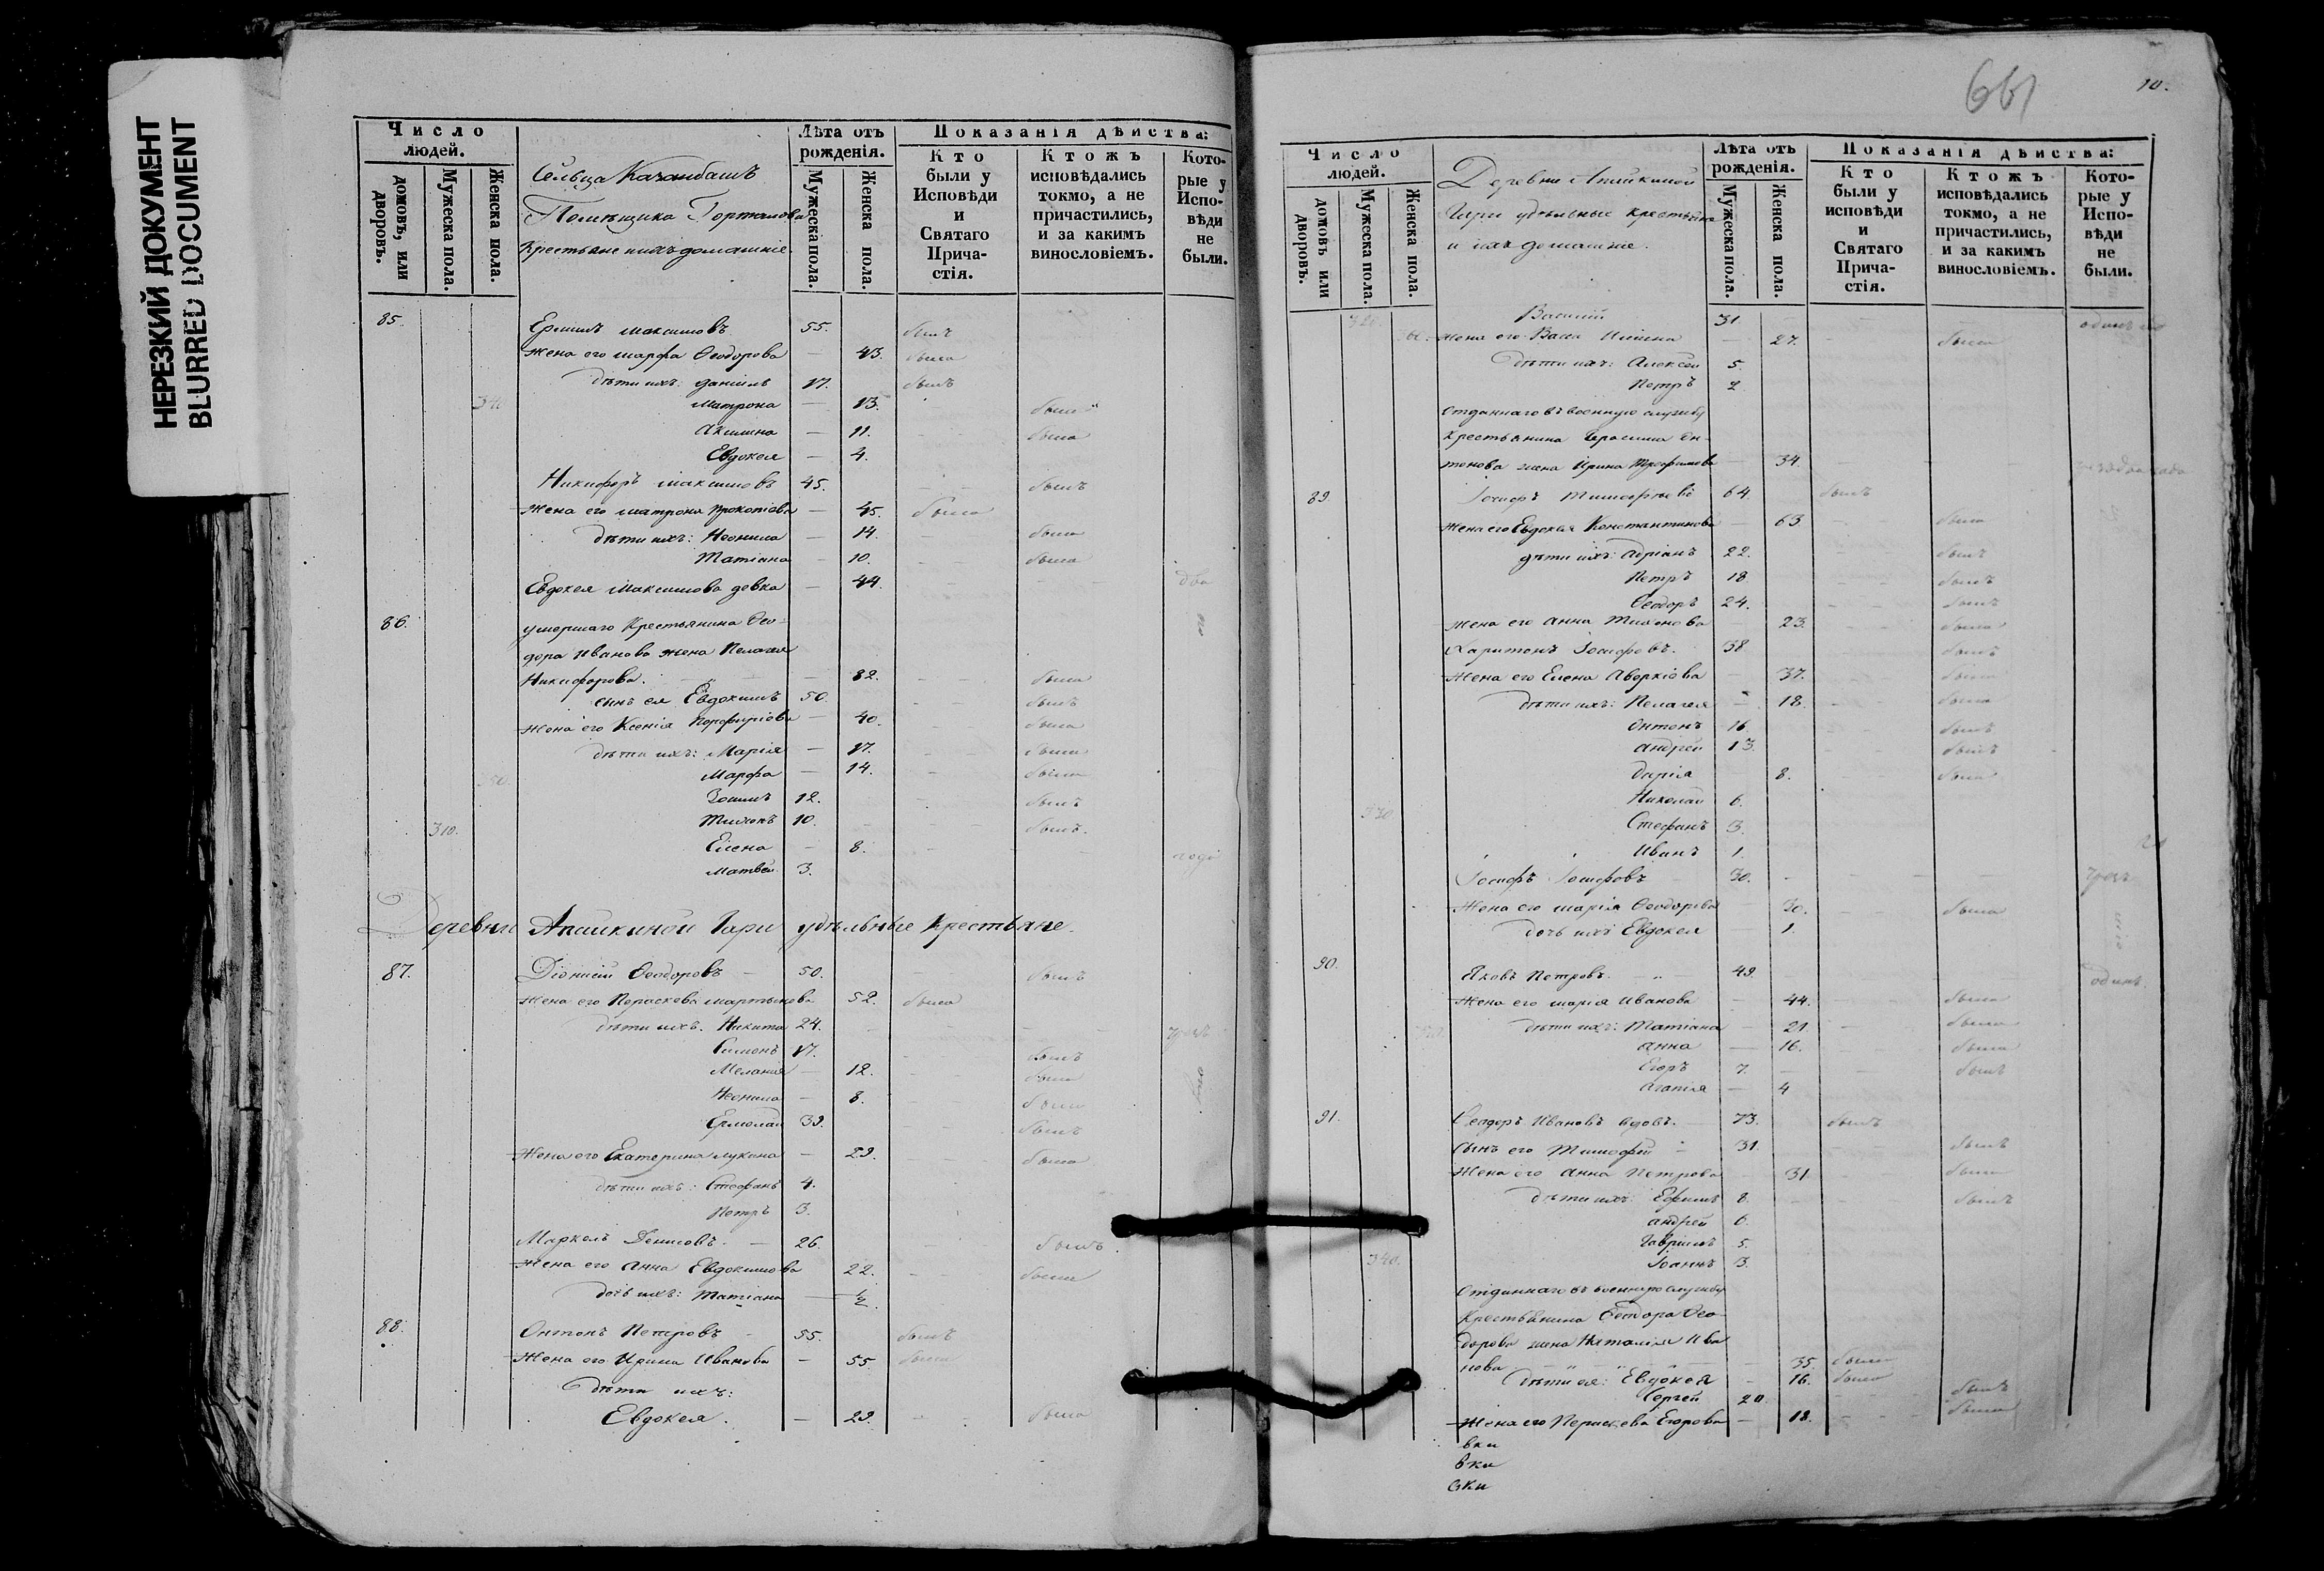 НЕРЕЗКИЙ ДОКУМЕНТ
BLURRED DOCUMENT
Число людей.
домовъ, или дворовъ.
Мужеска пола.
Женска пола.
Сельца
Помѣщика
Крестьяне и ихъ домашніе.
Лѣта отъ рожденія.
Мужеска пола.
Женска пола.
Показанія дѣйства:
Кто были у Исповѣди и Святаго Прича-стія.
Ктожъ исповѣдались токмо, а не причастились, и за какимъ винословіемъ.
Кото-рые у Испо-вѣди не были.
85. Ермилъ Максимовъ 55. былъ
Жена его Марфа Ѳеодорова — 43. была
дѣти ихъ: Даніилъ 17. былъ
Матрона — 13. была
Акилина — 11. была
Евдокея — 4.
Никифоръ Максимовъ 45. былъ
Жена его Матрона Прокопіова — 45. была
дѣти ихъ: Неонила — 14. была
Татіана — 10. была
Евдокея Максимова девка — 44. два
86. умершаго Крестьянина Ѳео-
дора Иванова жена Пелагея
Никифорова. — 82. была
сынъ ея Евдокимъ 50. былъ
Жена его Ксенія Порфиріова — 40. была
дѣти ихъ: Марія — 17. была
Марфа — 14. была
Зотикъ 12. былъ
310. Тихонъ 10. былъ.
Елена — 8. года
Матвей 3.
Деревни Апайкиной Гари удѣльные Крестьяне.
87. Діонисій Ѳеодоровъ — 50. былъ
Жена его Параскева Мартынова 52. была
дѣти ихъ: Никита 24.
Симонъ 17. былъ
Меланія — 12. была
Неонила — 8. была
Ермолай 39. былъ
Жена его Екатерина Лукина — 29. была
дѣти ихъ: Стефанъ 4.
Петръ 3.
Маркелъ Денисовъ. — 26. былъ.
Жена его Анна Евдокимова 22. была
дочь ихъ: Татіана — ½.
88. Антонъ Петровъ 55. былъ
Жена его Ирина Иванова — 55. была
дѣти ихъ:
Евдокея. — 29. была
661
10.
Число людей.
домовъ или дворовъ.
Мужеска пола.
Женска пола.
Деревни Апайкиной
Гари удѣльные крестьяне
и ихъ домашніе.
Лѣта отъ рожденія.
Мужеска пола.
Женска пола.
Показанія дѣйства:
Кто были у исповѣди и Святаго Прича-стія.
Ктожъ исповѣдались токмо, а не причастились, и за какимъ винословіемъ.
Кото-рые у Испо-вѣди не были.
Василій 31.
Жена его — 27. была
дѣти ихъ: Алексей 5.
Петръ 2.
Отданнаго въ военную службу
Крестьянина Герасима Ан-
тонова жена Ирина Трофимова 34.
89. Іосифъ Тимофѣевъ 64. былъ
Жена его Евдокея Константинова 63. была
дѣти ихъ: Адріанъ 22. былъ
Петръ 18. былъ
Ѳеодоръ 24. былъ
Жена его Анна 23. была
Харитонъ Іосифовъ. 38 былъ
Жена его Елена Аверкіова 37. была
дѣти ихъ: Пелагея — 18. была
Антонъ 16. былъ
Андрей 13. былъ
Дарія 8. была
Николай 6.
330 Стефанъ 3.
Иванъ 1.
Іосифъ Іосифовъ 30.
Жена его Марія Ѳеодорова 30. была
дочь ихъ Евдокея 1.
90. Яковъ Петровъ. 49. одинъ
Жена его Марія Иванова — 44. была
дѣти ихъ: Татіана — 21. была
Анна — 16. была
Егоръ 7. былъ
Агапія — 4
91. Ѳеодоръ Ивановъ вдовъ. 73. былъ
Сынъ его Тимофей 31. былъ
Жена его Анна Петрова 31. была
дѣти ихъ: Ефимъ 8. былъ
Андрей 6.
Гавріилъ 5.
340. Іоаннъ 3.
Отданнаго въ военную службу
Крестьянина Ѳеодора Ѳео-
дорова жена Наталія Ива
нова 35. была
дѣти ея: Евдокея 16. была
Сергей 20. былъ
Жена его Параскева Егорова — 18. была
вки
вки
вки